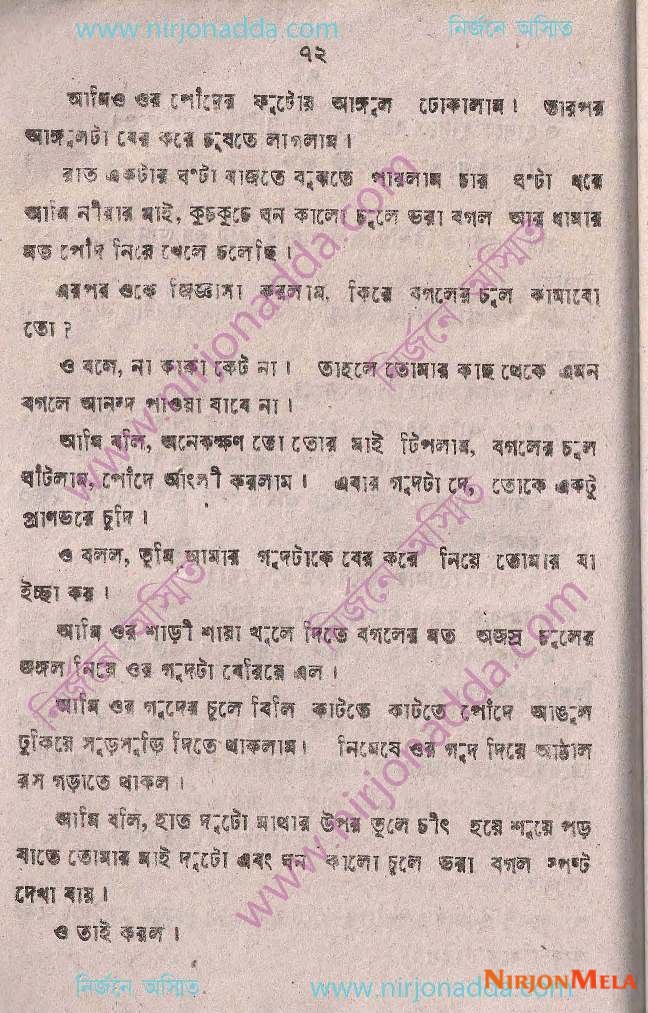 www.nirjonadda.com নির্জনে অস্মিত
৭২
আমিও ওর পোঁদের ফুটোয় আঙ্গুল ঢোকালাম। তারপর
আঙ্গুলটা বের করে চুষতে লাগলাম।
রাত একটার ঘণ্টা বাজতে বুঝতে পারলাম চার ঘণ্টা ধরে
আমি নীরার মাই, কুচকুচে ঘন কালো চুলে ভরা বগল আর ধামার
মত পোঁদ নিয়ে খেলে চলেছি।
এরপর ওকে জিজ্ঞাসা করলাম, কিরে বগলের চুল কামাবো
তো?
ও বলে, না কাকা কেট না। তাহলে তোমার কাছ থেকে এমন
বগলে আনন্দ পাওয়া যাবে না।
আমি বলি, অনেকক্ষণ তো তোর মাই টিপলাম, বগলের চুল
ঘাঁটলাম, পোঁদে আংলী করলাম। এবার গুদটা দে, তোকে একটু
প্রাণভরে চুদি।
ও বলল, তুমি আমার গুদটাকে বের করে নিয়ে তোমার যা
ইচ্ছা কর।
আমি ওর শাড়ী শায়া খুলে দিতে বগলের মত অজস্র চুলের
জঙ্গল নিয়ে ওর গুদটা বেরিয়ে এল।
আমি ওর গুদের চুলে বিলি কাটতে কাটতে পোঁদে আঙুল
ঢুকিয়ে সুড়সুড়ি দিতে থাকলাম। নিমেষে ওর গুদ দিয়ে আঠাল
রস গড়াতে থাকল।
আমি বলি, হাত দুটো মাথার উপর তুলে চীৎ হয়ে শুয়ে পড়
যাতে তোমার মাই দুটো এবং ঘন কালো চুলে ভরা বগল স্পষ্ট
দেখা যায়।
ও তাই করল।
www.nirjonadda.com
নির্জনে অস্মিত
www.nirjonadda.com
নির্জনে অস্মিত
নির্জনে অস্মিত
www.nirjonadda.com
নির্জনে অস্মিত www.nirjonadda.com
NIRJONMELA